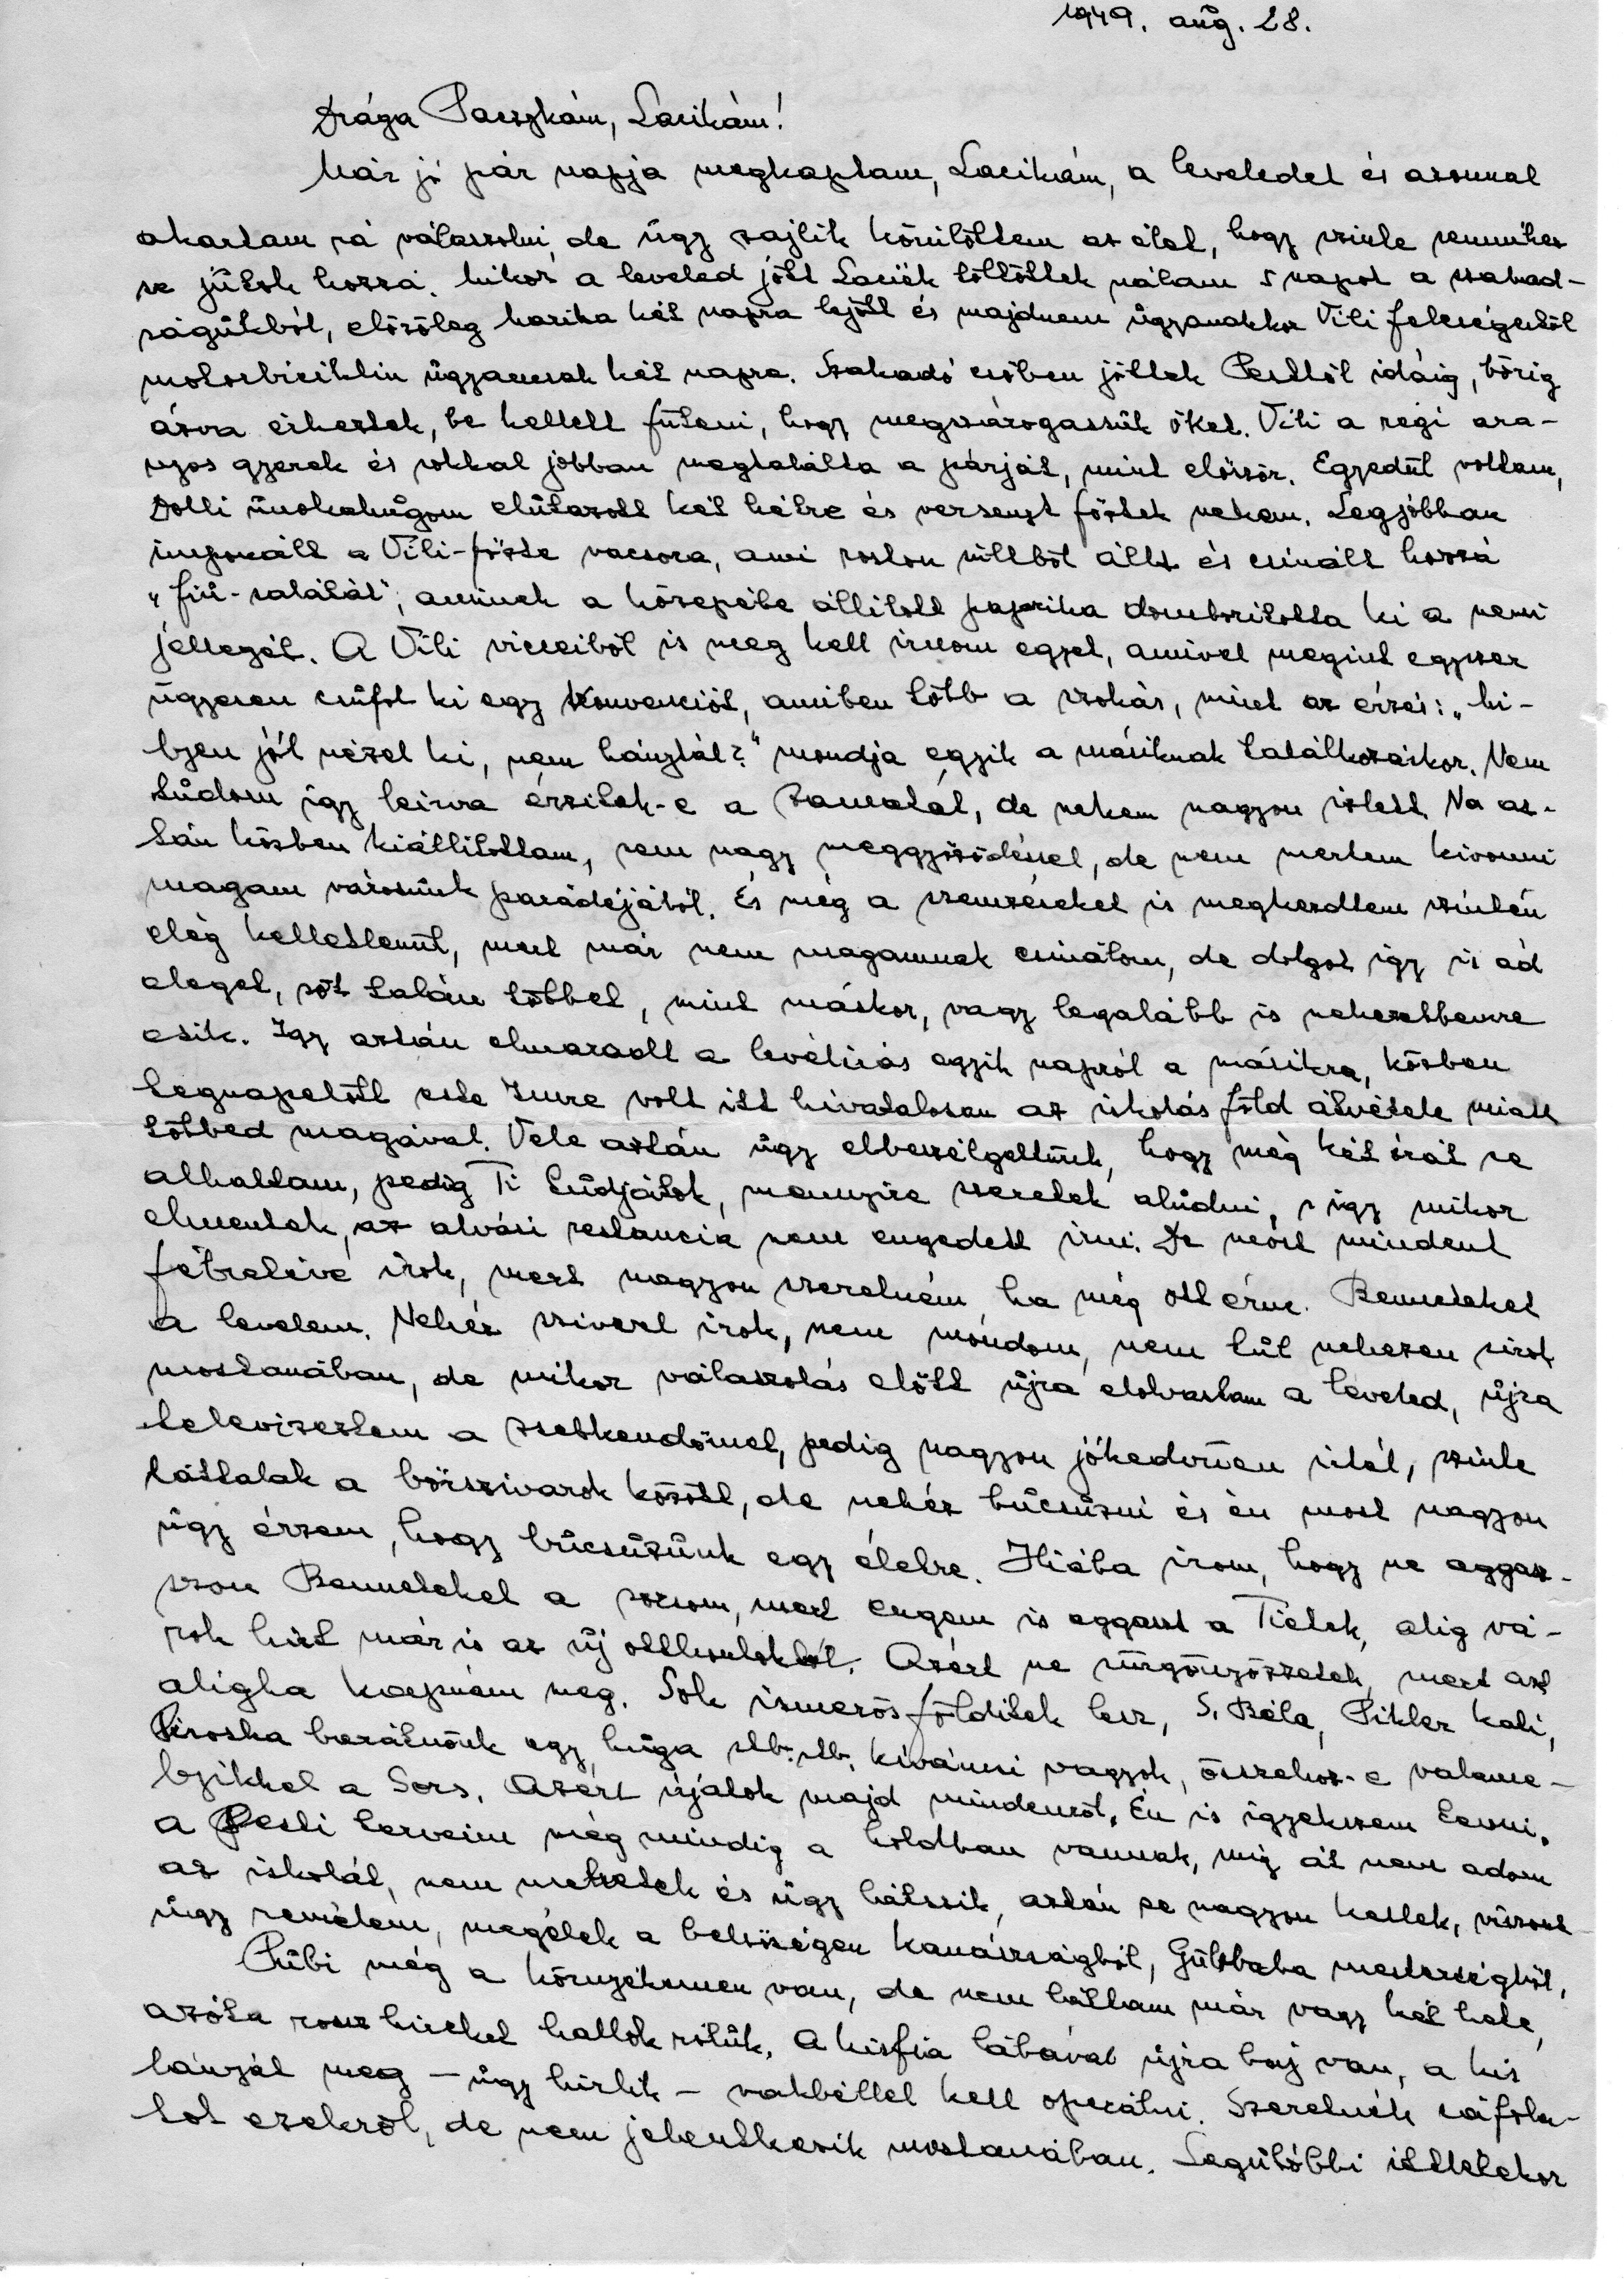 1949. aug. 28.
Drága Paczkám, Lacikám!
Már jó pár napja megkaptam, Lacikám, a leveledet és azonnal
akartam rá válaszolni, de úgy zajlik körülöttem az élet, hogy szinte semmihez
se jútok hozzá. Mikor a leveled jött Laciék töltöttek nálam 5 napot a szabad-
ságukból, előzőleg Marika két napra lejött és majdnem úgyanakkor Vili feleségestől
motorbiciklin úgyancsak két napra. Szakadó esőben jöttek Pesttől idáig, bőrig
ázva érkeztek, be kellett fűteni, hogy megszárogassuk őket. Vili a régi ara-
nyos gyerek és sokkal jobban megtalálta a párját, mint először. Egyedül voltam,
Dolli únokahúgom elútazott két hétre és versenyt főztek nekem. Legjobban
imponált a Vili-főzte vacsora, ami roston sültből állt és csinált hozzá
"fiú-salátát", aminek a közepébe állított paprika domborította ki a nemi
jellegét. A Vili vicceiből is meg kell írnom egyet, amivel megint egyszer
ügyesen csúfol ki egy konvenciót, amiben több a szokás, mint az érzés: "mi-
lyen jól nézel ki, nem hánytál?" mondja egyik a másiknak találkozáskor. Nem
túdom így leírva érzitek-e a zamatát, de nekem nagyon ízlett. Na az-
tán közben kiállítottam, nem nagy meggyőződéssel, de nem mertem kivonni
magam városunk parádéjából. És még a szemzéseket is megkezdtem szintén
elég kelletlenül, mert már nem magamnak csinálom, de dolgot így is ád
eleget, sőt talán többet, mint máskor, vagy legalább is nehezebbemre
esik. Igy aztán elmaradt a levélírás egyik napról a másikra, közben
tegnapelőtt este Imre volt itt hivatalosan az iskolás föld átvétele miatt
többed magával. Vele aztán úgy elbeszélgettünk, hogy még két órát se
alhattam, pedig Ti túdjátok, mennyire szeretek alúdni, s így mikor
elmentek, az alvási restancia nem engedett írni. De most mindent
félretéve írok, mert nagyon szeretném, ha még ott érne Benneteket
a levelem. Nehéz szívvel írok, nem mondom, nem túl nehezen sírok
mostanában, de mikor válaszolás előtt újra elolvastam a leveled, újra
televizeztem a zsebkendőmet, pedig nagyon jókedvűen írtál, szinte
láttalak a bőrszivarok között, de nehéz búcsúzni és én most nagyon
úgy érzem, hogy búcsúzunk egy életre. Hiába írom, hogy ne aggasz-
szon Benneteket a sorsom, mert engem is aggaszt a Tietek, alig vá-
rok hírt már is az új otthonotokból. Azért ne sürgönyözzetek, mert azt
aligha kapnám meg. Sok ismerős földitek lesz, S. Béla, Pikler Kati,
Piroska barátnőnk egy húga stb. stb. kíváncsi vagyok, összehoz-e valame-
lyikkel a Sors. Azért írjatok majd mindenről. Én is igyekszem tenni.
A Pesti terveim még mindig a holdban vannak, míg át nem adom
az iskolát, nem mehetek és úgy látszik, aztán se nagyon kellek, viszont
úgy remélem, megélek a belsőségen kanászságból, Gülbaba mesterségből.
Púbi még a környékemen van, de nem láttam már vagy két hete,
azóta rossz híreket hallok róluk. A kisfia lábával újra baj van, a kis
lányát meg – úgy hírlik – vakbéllel kell operálni. Szeretnék cáfola-
tot ezekről, de nem jelentkezik mostanában. Legútóbbi ittlétekor